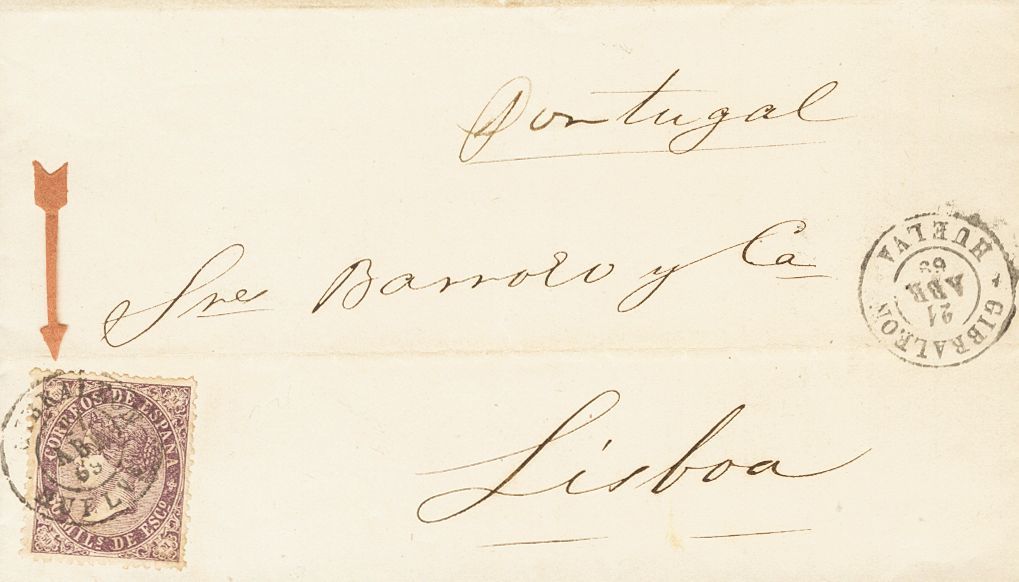 Portugal
Sres Barrozo y Ca
Lisboa
GIBRALEON HUELVA
21
ABR
69
CORREOS DE ESPAÑA
MILS DE ESCO
ABR
69